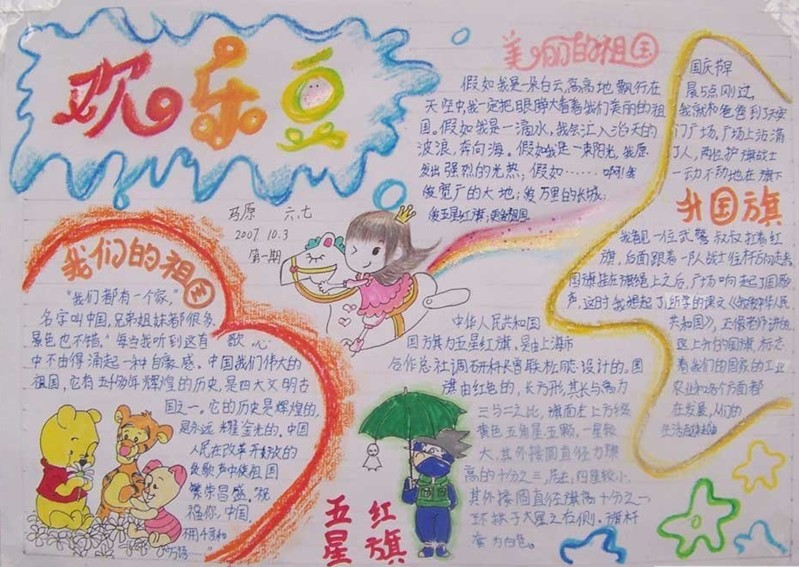 欢乐豆
马原 六.七
2007.10.3
第一期
美丽的祖国
假如我是一朵白云,高高地飘行在
天空中,我一定把眼睁大看着我们美丽的祖
国。假如我是一滴水,我会汇入滔天的
波浪,奔向海。假如我是一束阳光,我愿
发出强烈的光热,假如……啊!爱
爱宽广的大地;爱万里的长城;
爱五星红旗,更爱祖国
国庆节早
晨5点刚过,
我就和爸爸到了天安
门广场,广场上站满
了人,两位护旗战士
一动不动地在旗下
升国旗
我看见一位武警叔叔扛着红
旗,后面跟着一队战士往杆方向走去,
国旗挂在旗绳上之后,广场响起了国歌
声,这时我想起了所学的课文
共和国》,
这上升的国旗,标志
着我们的国家的工业
农业和各个方面都
在发展,人们的
我们的祖国
“我们都有一个家,
名字叫中国,兄弟姐妹都很多,
景色也不错。”每当我听到这首歌,心
中不由得涌起一种自豪感。中国我们伟大的
祖国,它有五千多年辉煌的历史,是四大文明古
国之一。它的历史是辉煌的,
是永远耀金光的。中国
人民在改革开放的
歌声中使祖国
繁荣昌盛。祝
福你,中国
用千言和
万语…”
中华人民共和国
国旗为五星红旗,是由上海市
合作总社调研科长曾联松成设计的。国
旗由红色的,长方形,其长与高为
三与二之比,旗面左上方缀
黄色五角星五颗。一星较
大,其外接圆直径为旗
高的十分之三,居左,四星较小,
其外接圆直径旗高十分之一
环拱于大星之右侧。旗杆
套为白色。
五星红旗